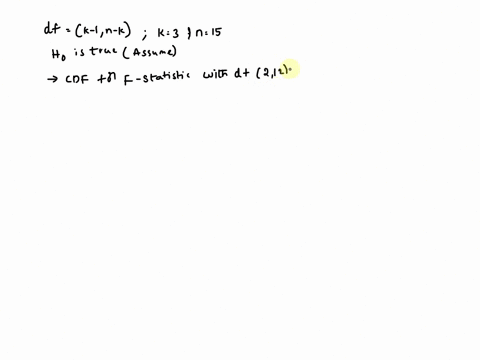 df = (k-1, n-k) ; k=3 & n=15
H0 is true (Assume)
→ CDF for F-statistic with df (2,12).